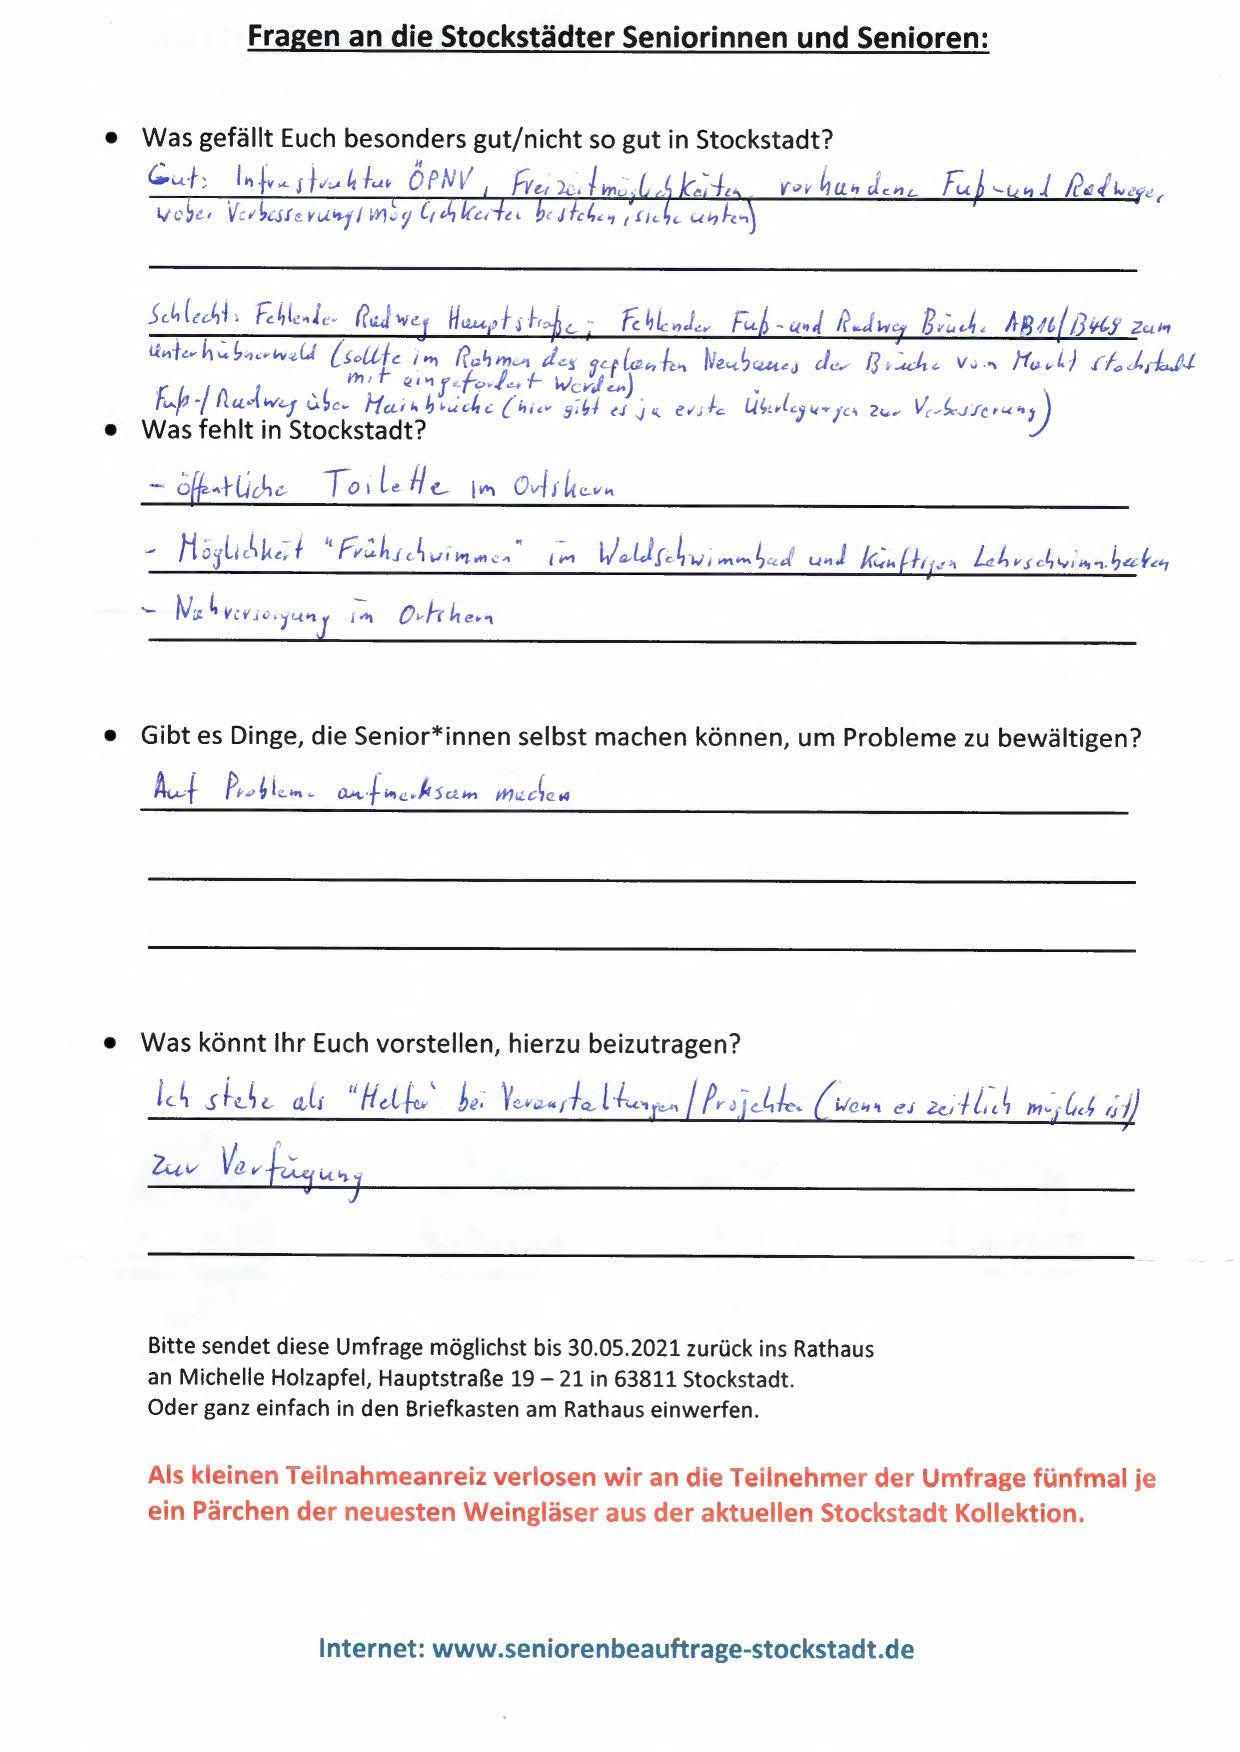 Fragen an die Stockstädter Seniorinnen und Senioren:
• Was gefällt Euch besonders gut/nicht so gut in Stockstadt?
Gut: Infrastruktur ÖPNV, Freizeitmöglichkeiten, vorhandene Fuß-und Radwege,
wobei Verbesserungsmöglichkeiten bestehen, siehe unten)
Schlecht: Fehlender Radweg Hauptstraße; Fehlender Fuß-und Radweg Brücke AB16/B469 zum
Unterhübnerwald (sollte im Rahmen des geplanten Neubaues der Brücke vom Markt Stockstadt
mit eingefordert werden)
Fuß-/Radweg über Mainbrücke (hier gibt es ja erste Überlegungen zur Verbesserung)
• Was fehlt in Stockstadt?
- öffentliche Toilette im Ortskern
- Möglichkeit "Frühschwimmen" im Waldschwimmbad und künftigen Lehrschwimmbecken
- Nahversorgung im Ortskern
• Gibt es Dinge, die Senior*innen selbst machen können, um Probleme zu bewältigen?
Auf Probleme aufmerksam machen
• Was könnt Ihr Euch vorstellen, hierzu beizutragen?
Ich stehe als "Helfer" bei Veranstaltungen/Projekten (wenn es zeitlich möglich ist)
zur Verfügung
Bitte sendet diese Umfrage möglichst bis 30.05.2021 zurück ins Rathaus
an Michelle Holzapfel, Hauptstraße 19 – 21 in 63811 Stockstadt.
Oder ganz einfach in den Briefkasten am Rathaus einwerfen.
Als kleinen Teilnahmeanreiz verlosen wir an die Teilnehmer der Umfrage fünfmal je
ein Pärchen der neuesten Weingläser aus der aktuellen Stockstadt Kollektion.
Internet: www.seniorenbeauftrage-stockstadt.de